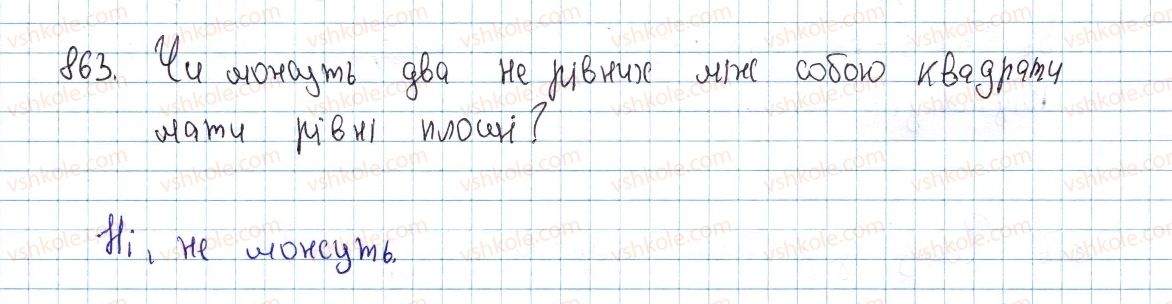 863. Чи можуть два не рівних між собою квадрати
мати рівні площі?
Ні, не можуть.